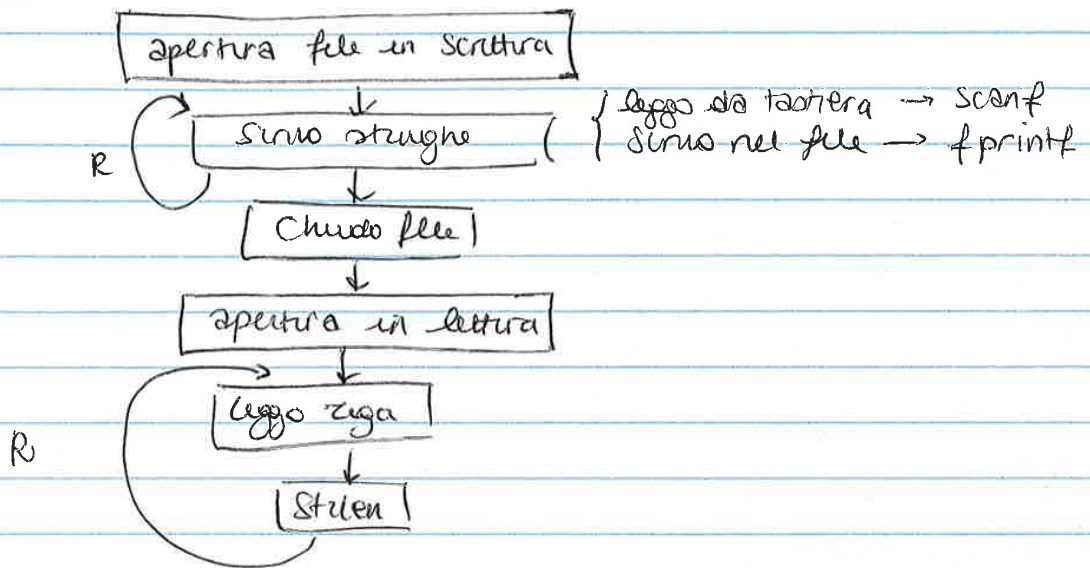 apertura file in scrittura
scrivo stringhe { leggo da tastiera → scanf
scrivo nel file → fprintf
R
Chiudo file
apertura in lettura
leggo riga
R
Strlen